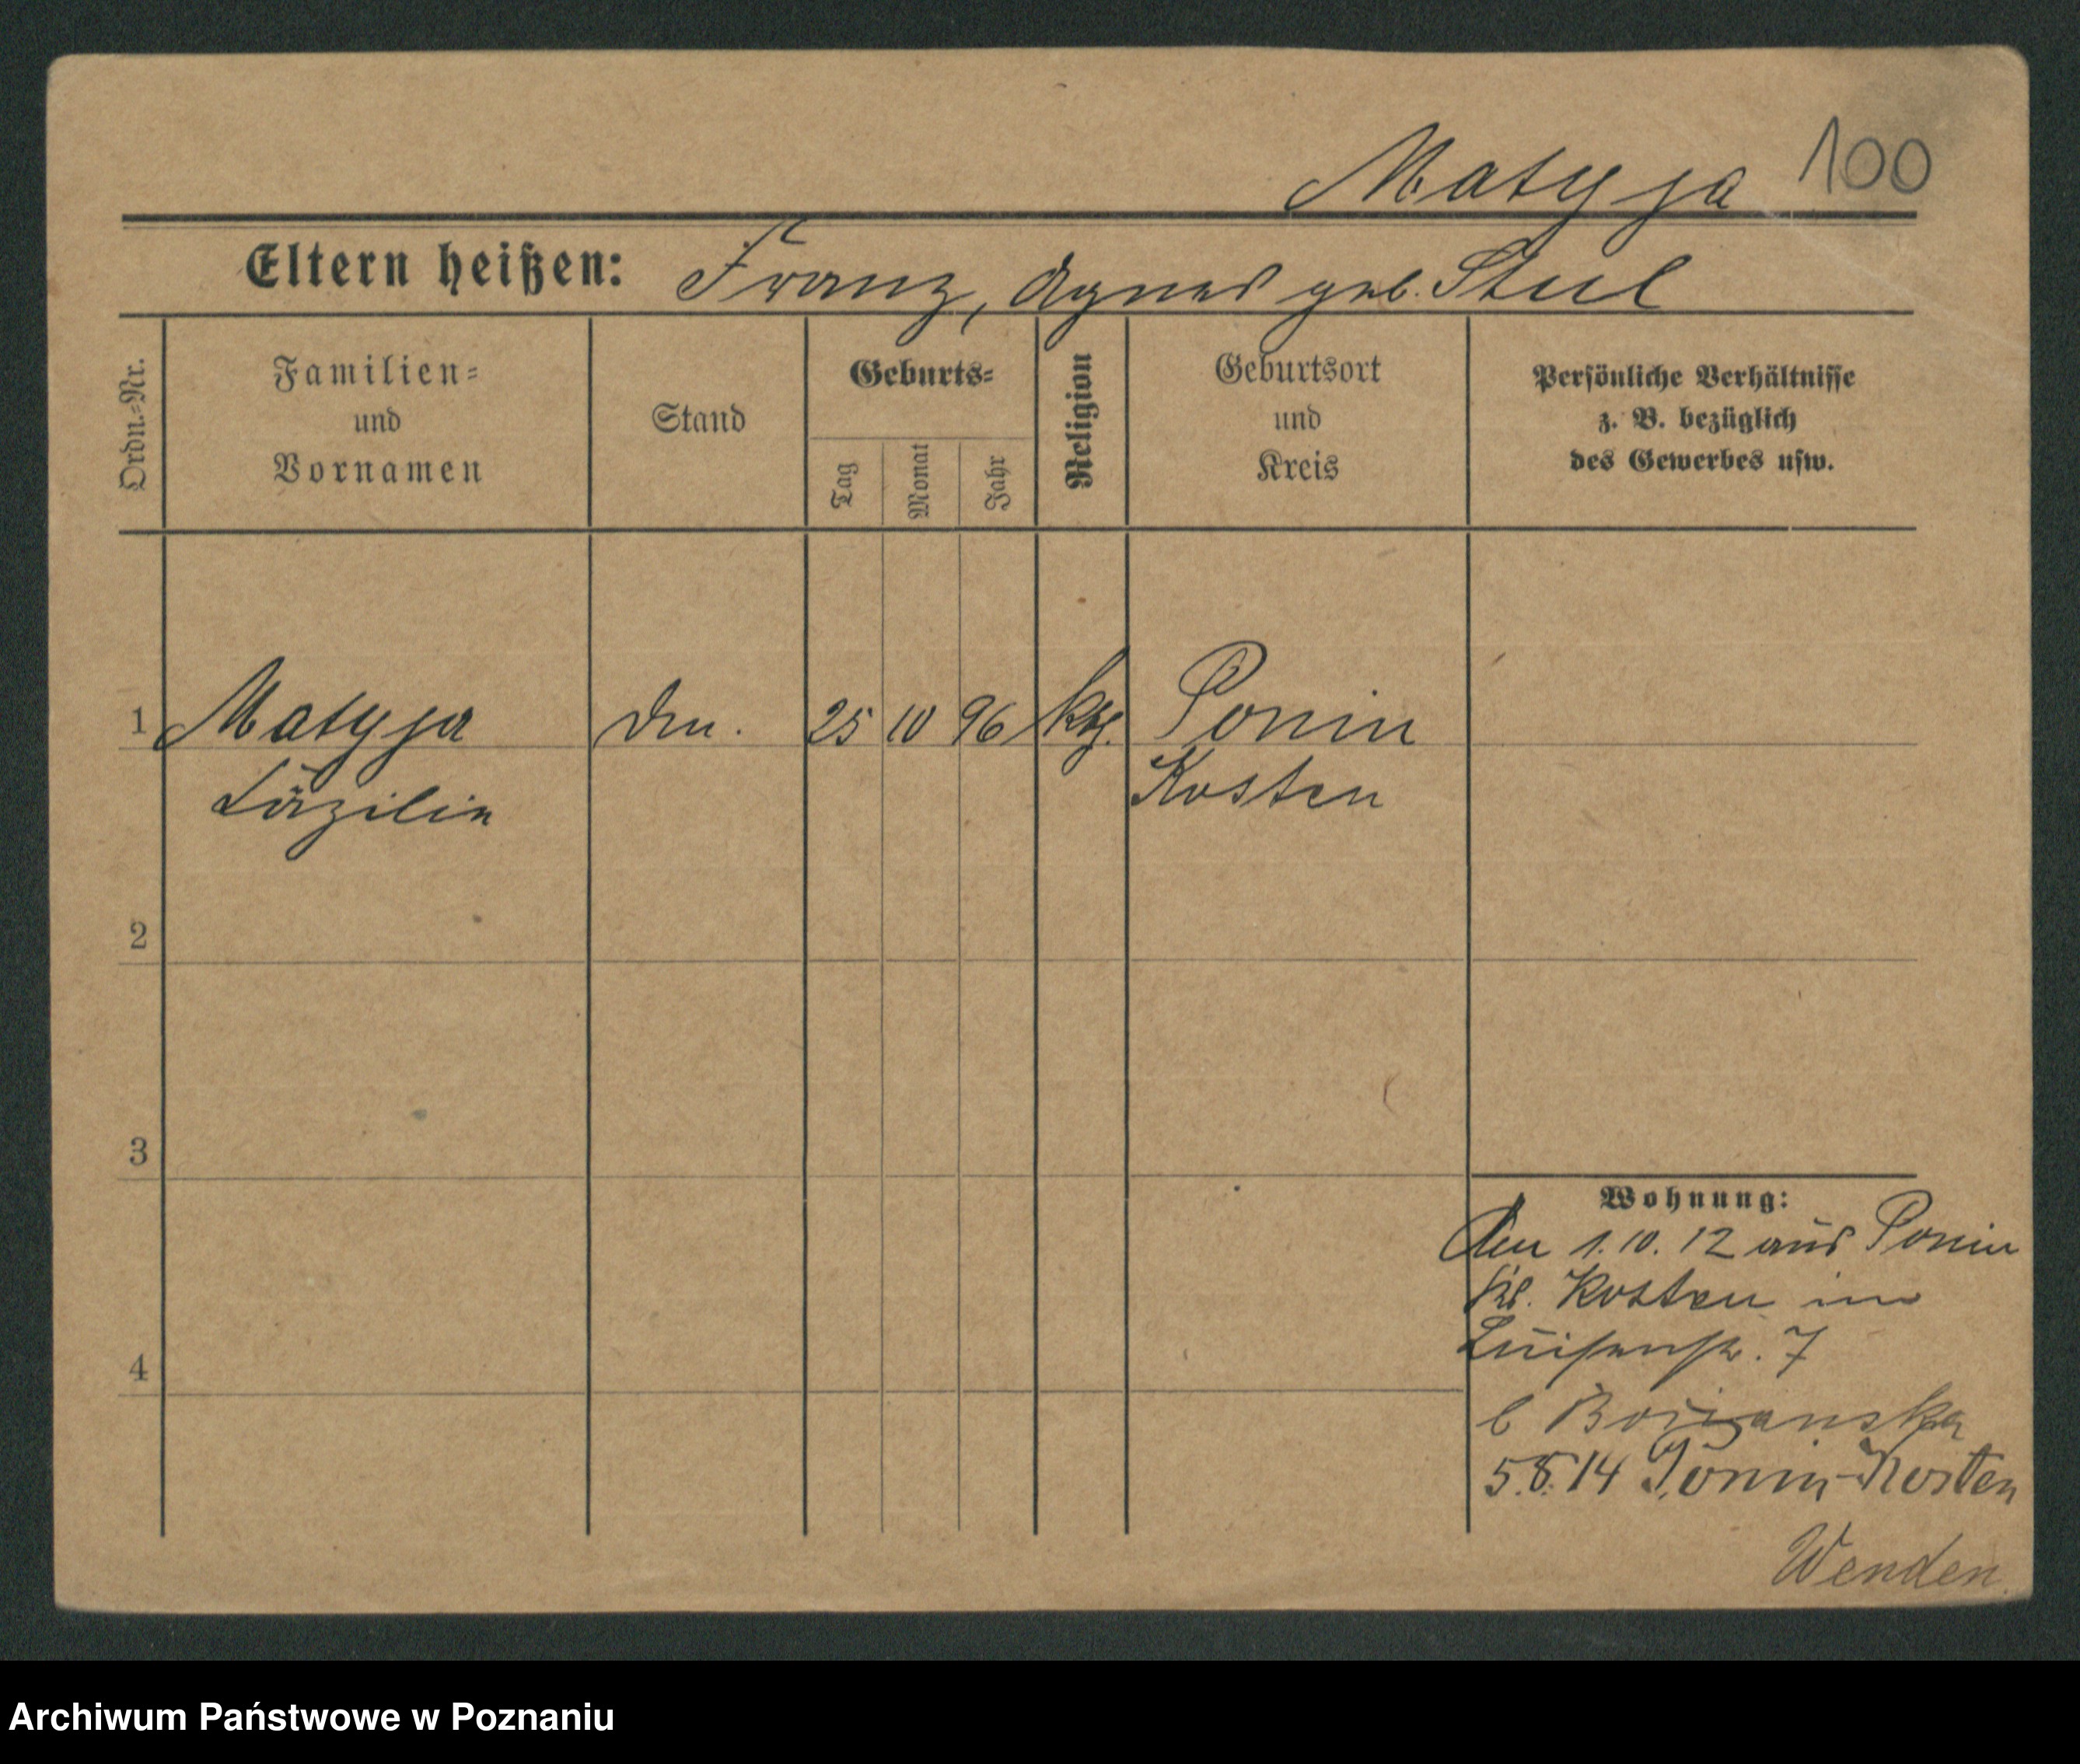 Matyja 100
Eltern heißen: Franz, Agnes geb. Stul
Ordn.-Nr.
Familien-
und
Vornamen
Stand
Geburts-
Tag
Monat
Jahr
Religion
Geburtsort
und
Kreis
Persönliche Verhältnisse
z. B. bezüglich
des Gewerbes usw.
1 Matyja 25 10 96 kth. Ponin
Cäzilie Kosten
2
3
4
Wohnung:
1.10.12 aus Ponin
Kr. Kosten in
Luisenstr. 7
b
5.8.14 Ponin-Kosten
Wenden.
Archiwum Państwowe w Poznaniu